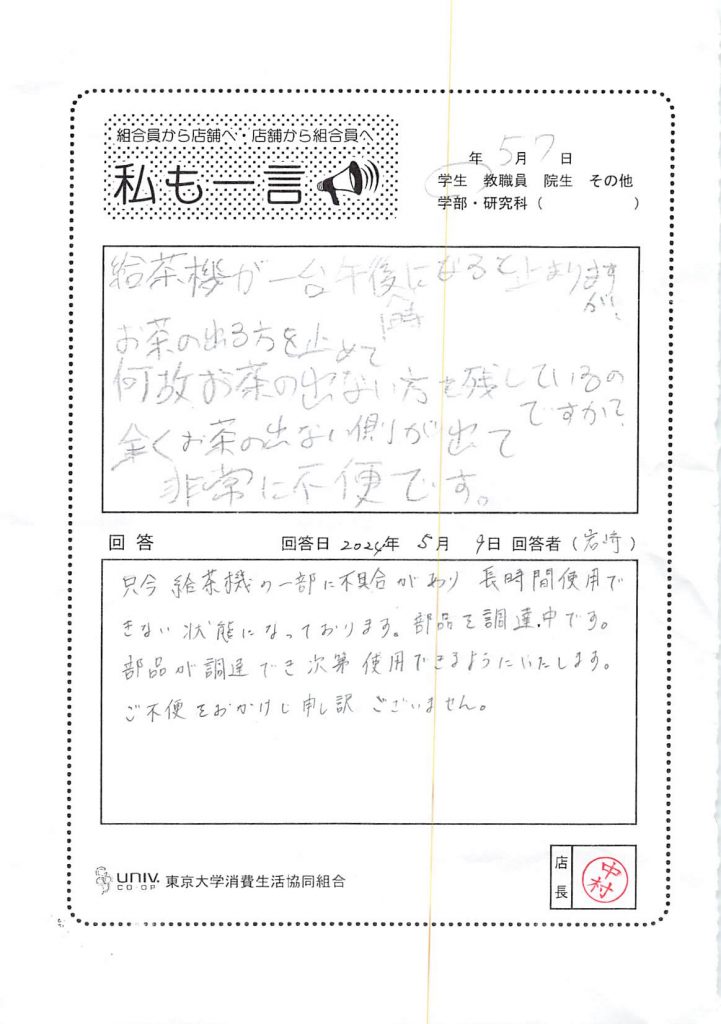 組合員から店舗へ・店舗から組合員へ
私も一言
年 5月 7日
学生 教職員 院生 その他
学部・研究科( )
給茶機が一台午後になると止まります
が、
時
お茶の出る方を止めて
何故お茶の出ない方を残しているの
ですか?
全くお茶の出ない側が出て
非常に不便です。
回答 回答日 2024年 5月 9日 回答者(岩崎)
只今 給茶機の一部に不具合があり 長時間使用で
きない状態になっております。部品を調達中です。
部品が調達でき次第 使用できるようにいたします。
ご不便をおかけし申し訳ございません。
UNIV. CO-OP 東京大学消費生活協同組合
店長
中村